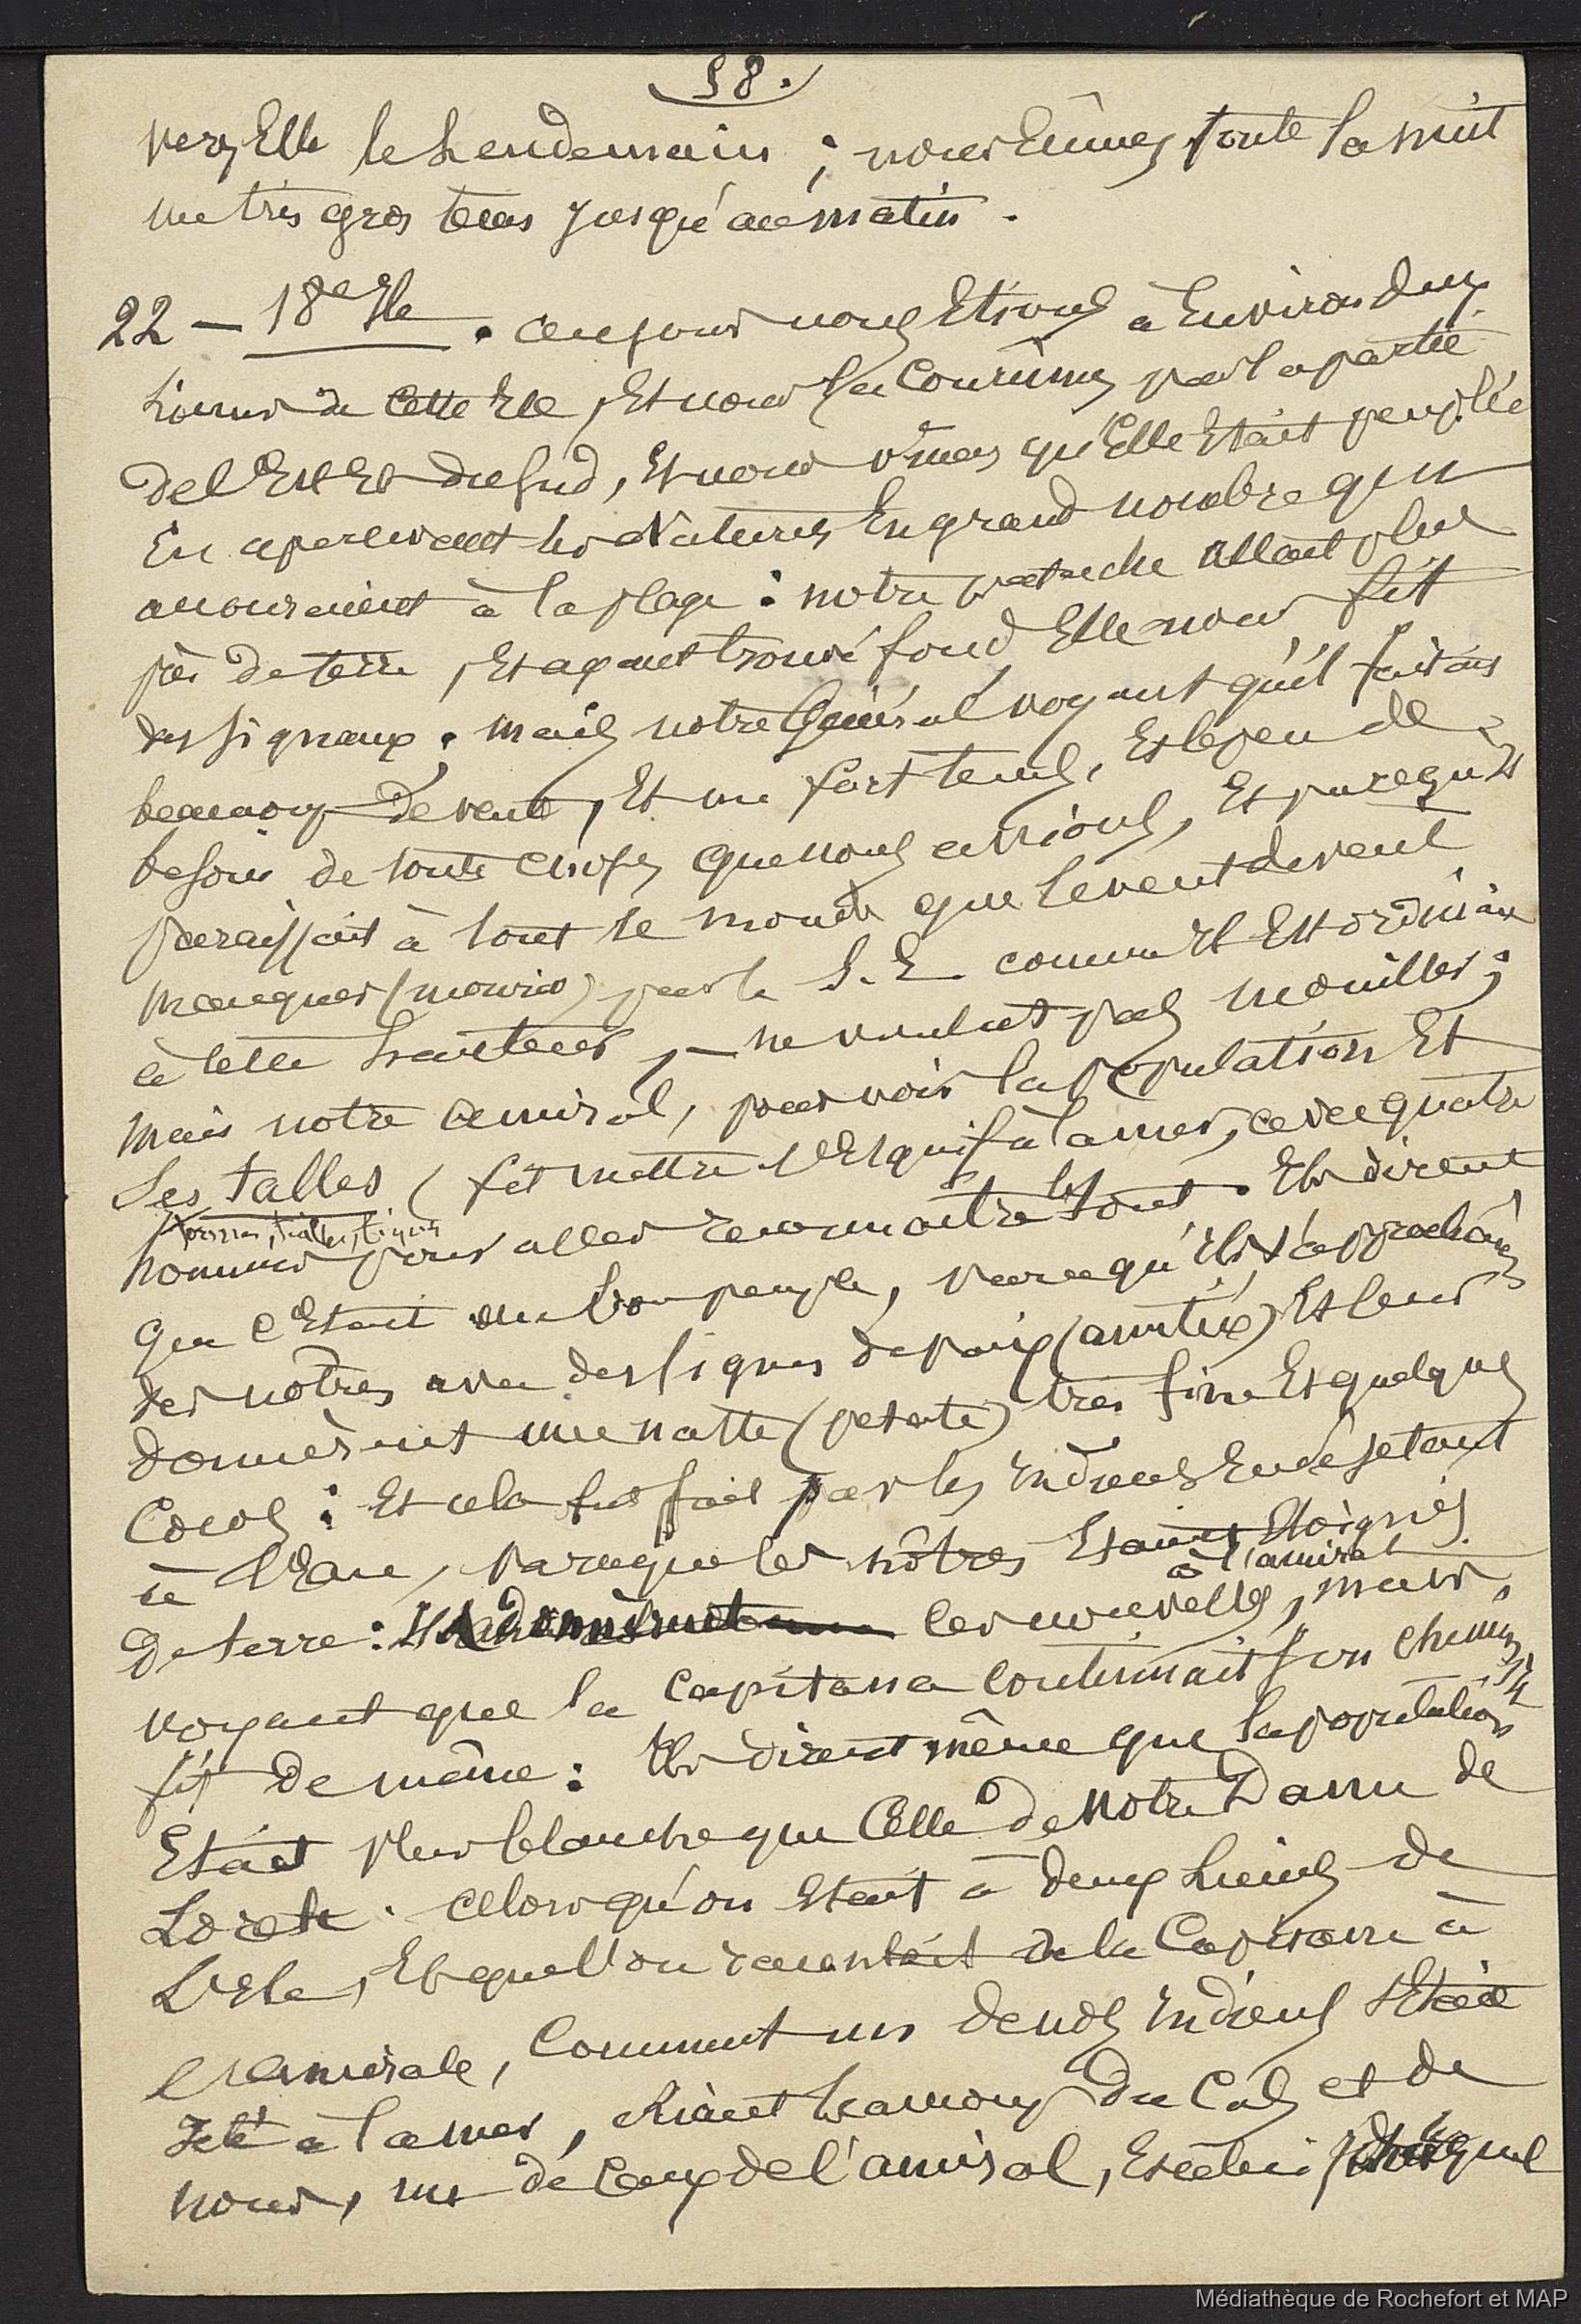 58.
vers Elle le Lendemain ; nous Eûmes toute la nuit
un très gros tems jusqu'au matin .
22 — 18e Ile . ce jour nous Etions à Environ deux
Lieues de Cette Ile , Et nous la Courûmes par la partie
de l'Est Et du Sud , Et nous vîmes qu'Elle Etait peuplée
En apercevant les Naturels En grand nombre qui
accouraient à la plage : notre patache allant plus
près de terre , Et ayant trouvé fond Elle nous fit
des signaux . mais notre Général voyant qu'il faisait
beaucoup de vent , Et un fort tems , Et le peu de
besoin de toute choses que nous avions , Et parcequ'il
paraissait à tout le monde que le vent devait
manquer (mourir) par le S. E. comme Il Est ordinaire
à cette hauteur , — ne voulut pas mouiller ;
mais notre amiral , pour voir la population Et
Les talles ( fit mettre l'Esquif à la mer , avec quatre
formes , tailles , figures
hommes pour aller reconnaître le tout . Ils dirent
que c'Etait un bon peuple , parcequ'Ils s'approchèrent
des nôtres avec des signes de paix (amitié) Et leur
donnèrent une natte (petate) très fine Et quelques
Cocos : Et cela fut fait par les Indiens En se jetant
à l'Eau , parceque les nôtres Etaient Eloignés
à l'amiral
de terre : Ils donnèrent ces nouvelles , mais ,
voyant que la Capitana continuait son chemin Il
fit de même : Ils dirent même que la population
Etait plus blanche que Celle de Notre Dame de
Lorete . alors qu'on Etait à deux Lieues de
L'Ile , Et que l'on racontait de la Capitane à
l'amirale , Comment un de nos Indiens s'Etait
Jeté à la mer , chiant beaucoup du Cas et de
nous , un de Ceux de l'amiral , Et celui